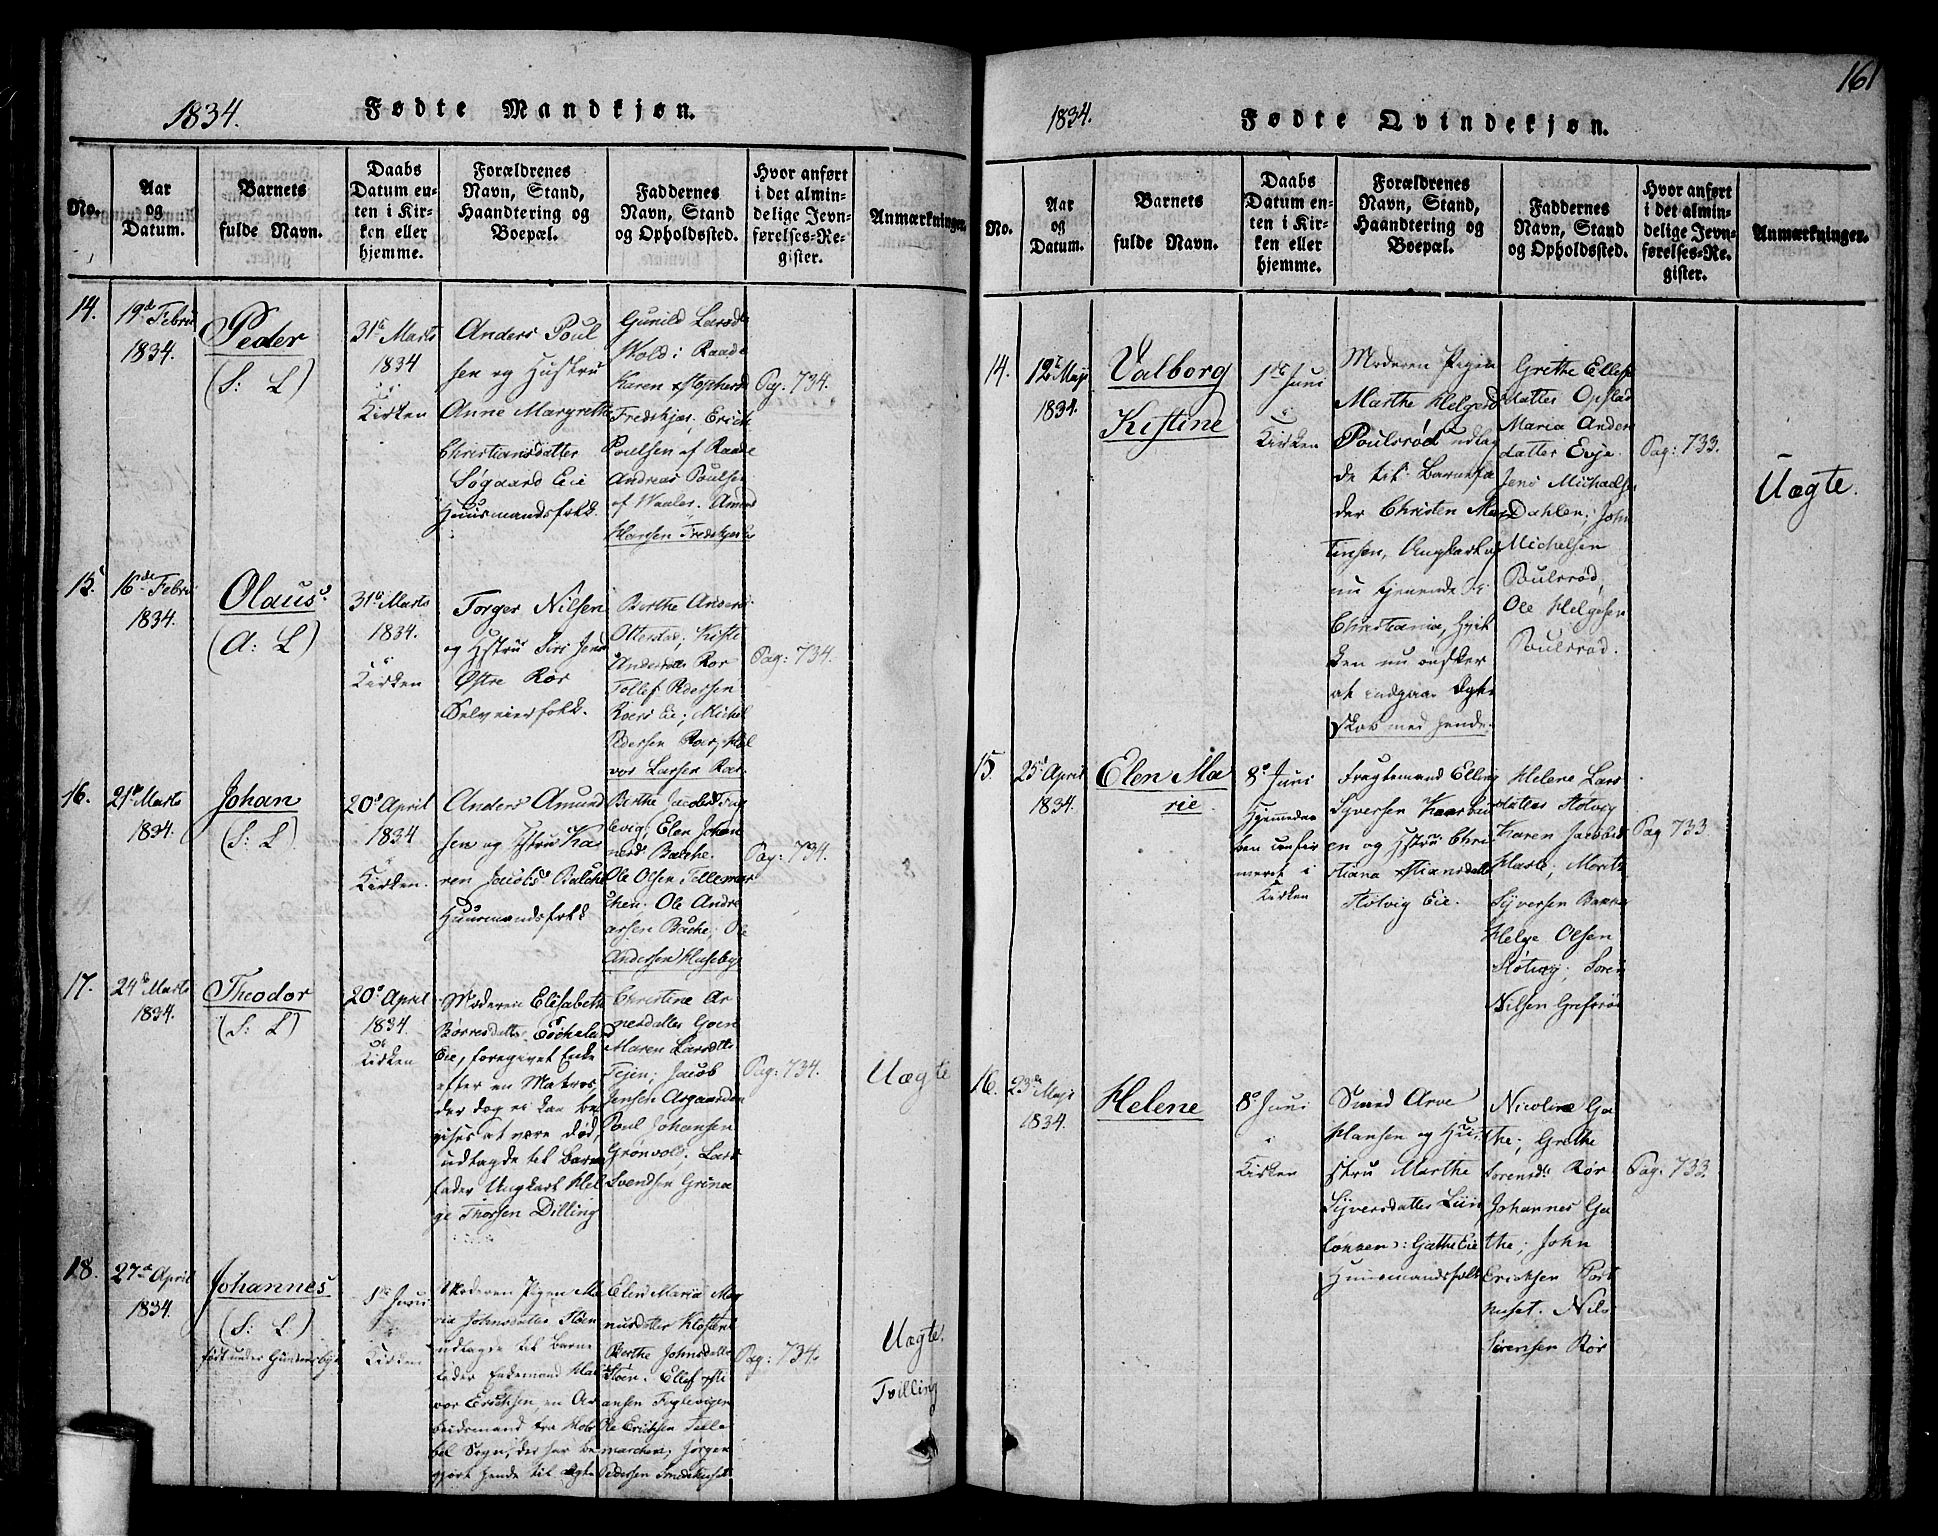 161
1834.
Fødte Mandkjøn.
No.
Aar
og
Datum.
Barnets
fulde Navn.
Daabs
Datum en-
ten i Kir-
ken eller
hjemme.
Forældrenes
Navn, Stand,
Haandtering og
Boepæl.
Faddernes
Navn, Stand
og Opholdssted.
Hvor anført
i det almin-
delige Jevn-
førelses-Re-
gister.
Anmærkninger.
14.
19de Febru
1834.
Peder
(S: L)
31te Marts
1834
i
Kirken
Anders Poul
sen og Hustru
Anne Margrethe
Christiansdatter
Søgaard Eie
Huusmandsfolk.
Gunild Larsdtr
Wold i Raade
Karen
Fredskjær, Erich
Poulsen af Raade
Andreas Poulsen
af Waaler. Amund
Hansen
Pag: 734.
15.
16de Febru
1834.
Olaus
(A: L)
31te Marts
1834.
i
Kirken
Torger Nilsen
og Hstru Siri Jens
Østre Rør
Selveierfolk.
Berthe Anders
Otterdal, Kisti
Andersdtr Rør
Tollef Pedersen
Roers Eie; Michel
Pedersen Roer, Hal
vor Larsen Rør.
Pag: 734.
16.
21de Marts
1834.
Johan
(S: L)
20de April
1834
i
Kirken.
Anders Amund
sen og Hstru Ka
ren Jacobs Bakke
Huusmandsfolk
Berthe Jacobsdtr
levig; Elen Johan
nesd. Bakke.
Ole Olsen Tellemar
chen. Ole Andre
asen Bache; Ole
Andersen Husebye
Pag: 734.
17.
24de Marts
1834.
Theodor
(S: L)
20de April
1834.
i
Kirken
Moderen Elisabeth
Børresdatter
Eie, foregivet Enke
efter en Matros,
der dog ei kan be
vises at være død,
udlagde til Barne
fader Ungkarl Hel
ge Thorsen Dilling
Christine Ar
nesdatter Goen
Maren Larsdtr
Tejen; Jacob
Jensen Aasgaarden
Poul Johansen
Grønvold; Lars
Svendsen Grina
Pag: 734.
Uægte
18.
27de April
1834.
Johannes
(S: L)
født under
1ste Juni
i
Kirken
Moderen Pigen Ma
ria Johnsdatter Støen
udlagde til Barne
fader Enkemand Hal
vor Erichsen, en Ar
beidsmand fra Hob
bøl Sogn, der har be
gjort hende til Egte
Elen Maria Mag
nusdatter Kloster
Berthe Johnsdatter
Støen. Ellef Kisti
ansen Fuglevigen
Ole Erichsen Telle
marchen; Jørgen
Pedersen Smedehuset
Pag: 734.
Uægte.
Tvilling
1834.
Fødte Qvindekjøn.
No.
Aar
og
Datum.
Barnets
fulde Navn.
Daabs
Datum en-
ten i Kir-
ken eller
hjemme.
Forældrenes
Navn, Stand,
Haandtering og
Boepæl.
Faddernes
Navn, Stand
og Opholdssted.
Hvor anført
i det almin-
delige Jevn-
førelses-Re-
gister.
Anmærkninger.
14.
12te Maji
1834.
Valborg
Kistine
1ste Juni
i
Kirken
Moderen Pigen
Marthe Helgesd
Poulsrød udlag
de til Barnefa
der Christen Mar
tinsen, Ungkarl og
nu tjenende i
Christiania, hvil
ken nu ønsker
at indgaae Egte
skab med hende.
Grethe Ellefs
datter Opstad
Maria Anders
datter Evje.
Jens Michaelsen
Dahlen; John
Michelsen
Poulsrød,
Ole Helgesen
Poulsrød.
Pag: 733.
Uægte.
15.
25de April
1834.
Elen Ma
rie.
8de Juni
Hjemmedø
ben confir
meret i
Kirken
Fragtemand Elling
Syversen
en og Hstru Chri
stiana Stiansdatter
Støtvig Eie.
Helene Lars
datter Støtvig
Karen Jacobsd.
Moritz
Syversen
Helge Olsen
Støtvig; Søren
Nilsen Grefsrød
Pag 733.
16.
23de Maji
1834.
Helene
8de Juni
i
Kirken
Smed Arve
Hansen og Hu
stru Marthe
Syversdatter
Gatheeie
Huusmandsfolk
Nicoline Ga
the; Grethe
Sorensdt. Rør
Johannes Ga
the; John
Erichsen Post
huset. Nils
Sørensen Rør
Pag: 733.